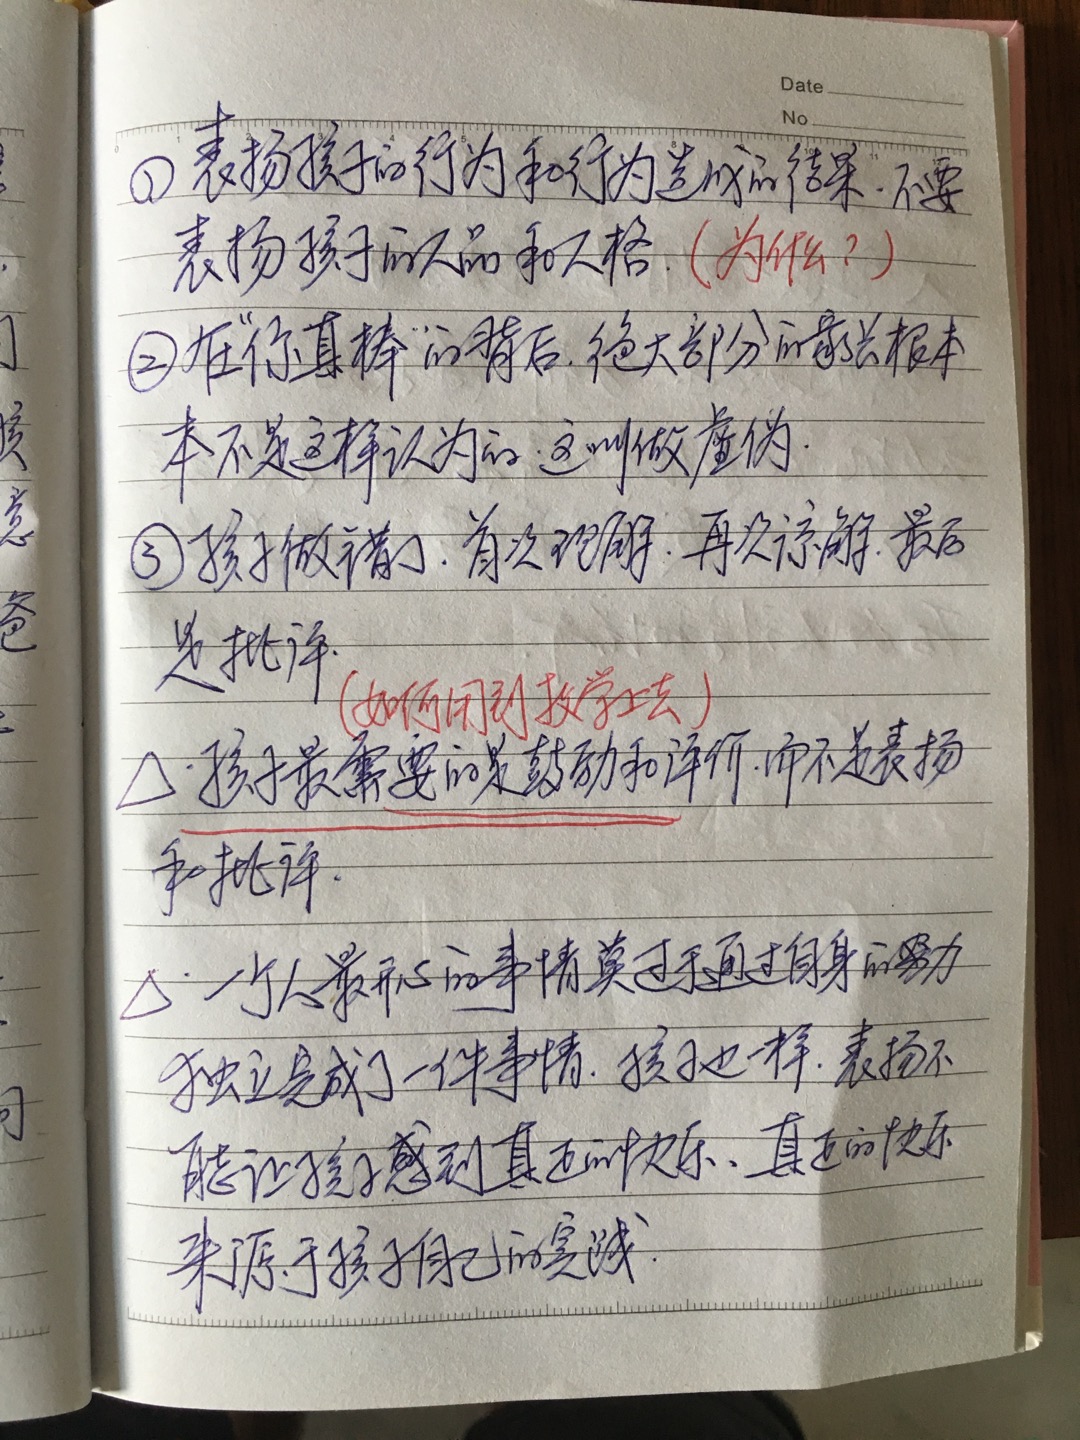 Date
No
① 表扬孩子的行为和行为造成的结果.不要
表扬孩子的人品和人格.(为什么?)
② 在"你真棒"的背后.绝大部分的家长根本
本不是这样认为的.这叫做虚伪.
③ 孩子做错了.首次理解.再次谅解.最后
是批评.
(如何用到教学上去)
△·孩子最需要的是鼓励和评价.而不是表扬
和批评.
△·一个人最开心的事情莫过于通过自身的努力
独立完成了一件事情.孩子也一样.表扬不
能让孩子感到真正的快乐、真正的快乐
来源于孩子自己的实践.